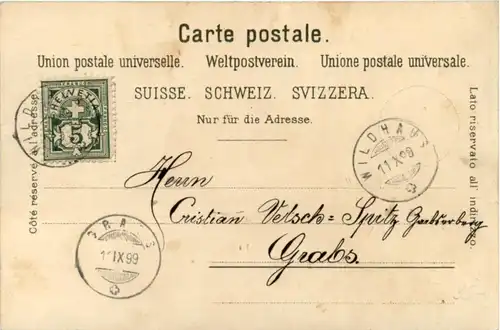 Carte postale.
Union postale universelle. Weltpostverein. Unione postale universale.
SUISSE. SCHWEIZ. SVIZZERA.
Nur für die Adresse.
Côté réservé à l'adresse.
Lato riservato all' indirizzo.
HELVETIA
5
WILDHAUS
11 X 99
Herrn
Cristian Vetsch=Spitz Grabserberg
Grabs.
GRABS
11 IX 99